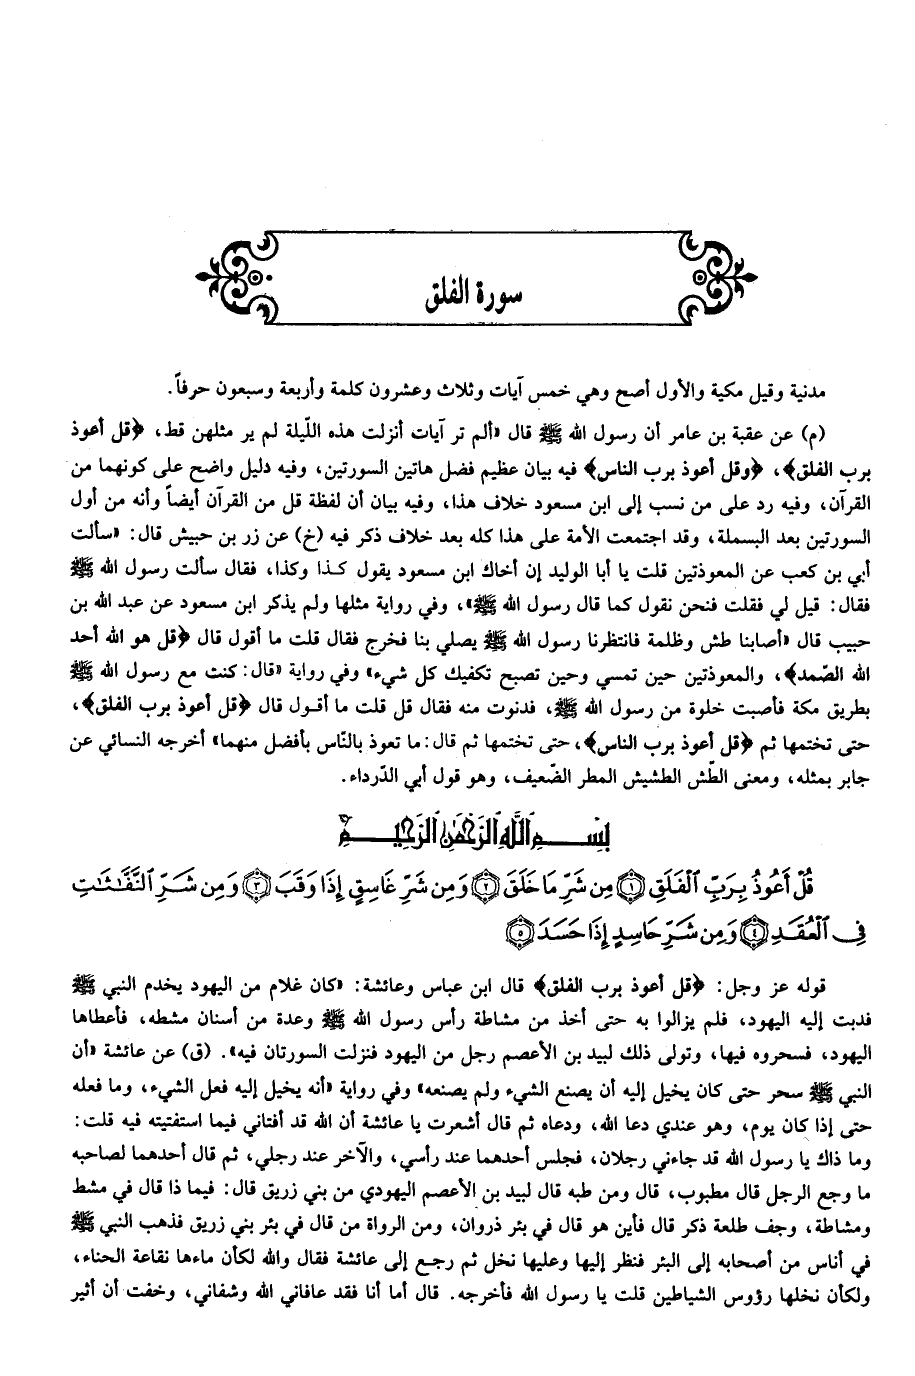 سورة الفلق
مدنية وقيل مكية والأول أصح وهي خمس آيات وثلاث وعشرون كلمة وأربعة وسبعون حرفاً.
(م) عن عقبة بن عامر أن رسول الله ﷺ قال «ألم تر آيات أنزلت هذه اللّيلة لم ير مثلهن قط، ﴿قل أعوذ
برب الفلق﴾، ﴿وقل أعوذ برب الناس﴾ فيه بيان عظيم فضل هاتين السورتين، وفيه دليل واضح على كونهما من
القرآن، وفيه رد على من نسب إلى ابن مسعود خلاف هذا، وفيه بيان أن لفظة قل من القرآن أيضاً وأنه من أول
السورتين بعد البسملة، وقد اجتمعت الأمة على هذا كله بعد خلاف ذكر فيه (خ) عن زر بن حبيش قال: «سألت
أبي بن كعب عن المعوذتين قلت يا أبا الوليد إن أخاك ابن مسعود يقول كذا وكذا، فقال سألت رسول الله ﷺ
فقال: قيل لي فقلت فنحن نقول كما قال رسول الله ﷺ»، وفي رواية مثلها ولم يذكر ابن مسعود عن عبد الله بن
حبيب قال «أصابنا طش وظلمة فانتظرنا رسول الله ﷺ يصلي بنا فخرج فقال قلت ما أقول قال ﴿قل هو الله أحد
الله الصّمد﴾، والمعوذتين حين تمسي وحين تصبح تكفيك كل شيء» وفي رواية «قال: كنت مع رسول الله ﷺ
بطريق مكة فأصبت خلوة من رسول الله ﷺ، فدنوت منه فقال قل قلت ما أقول قال ﴿قل أعوذ برب الفلق﴾،
حتى تختمها ثم ﴿قل أعوذ برب الناس﴾، حتى تختمها ثم قال: ما تعوذ بالنّاس بأفضل منهما» أخرجه النسائي عن
جابر بمثله، ومعنى الطّش الطشيش المطر الضّعيف، وهو قول أبي الدّرداء.
بِسْمِ اللَّهِ الرَّحْمَٰنِ الرَّحِيمِ
قُلْ أَعُوذُ بِرَبِّ ٱلْفَلَقِ ١ مِن شَرِّ مَا خَلَقَ ٢ وَمِن شَرِّ غَاسِقٍ إِذَا وَقَبَ ٣ وَمِن شَرِّ ٱلنَّفَّٰثَٰتِ
فِى ٱلْعُقَدِ ٤ وَمِن شَرِّ حَاسِدٍ إِذَا حَسَدَ ٥
قوله عز وجل: ﴿قل أعوذ برب الفلق﴾ قال ابن عباس وعائشة: «كان غلام من اليهود يخدم النبي ﷺ
فدبت إليه اليهود، فلم يزالوا به حتى أخذ من مشاطة رأس رسول الله ﷺ وعدة من أسنان مشطه، فأعطاها
اليهود، فسحروه فيها، وتولى ذلك لبيد بن الأعصم رجل من اليهود فنزلت السورتان فيه». (ق) عن عائشة «أن
النبي ﷺ سحر حتى كان يخيل إليه أن يصنع الشيء ولم يصنعه» وفي رواية «أنه يخيل إليه فعل الشيء، وما فعله
حتى إذا كان يوم، وهو عندي دعا الله، ودعاه ثم قال أشعرت يا عائشة أن الله قد أفتاني فيما استفتيته فيه قلت:
وما ذاك يا رسول الله قد جاءني رجلان، فجلس أحدهما عند رأسي، والآخر عند رجلي، ثم قال أحدهما لصاحبه
ما وجع الرجل قال مطبوب، قال ومن طبه قال لبيد بن الأعصم اليهودي من بني زريق قال: فيما ذا قال في مشط
ومشاطة، وجف طلعة ذكر قال فأين هو قال في بئر ذروان، ومن الرواة من قال في بئر بني زريق فذهب النبي ﷺ
في أناس من أصحابه إلى البئر فنظر إليها وعليها نخل ثم رجع إلى عائشة فقال والله لكأن ماءها نقاعة الحناء،
ولكأن نخلها رؤوس الشياطين قلت يا رسول الله فأخرجه. قال أما أنا فقد عافاني الله وشفاني، وخفت أن أثير